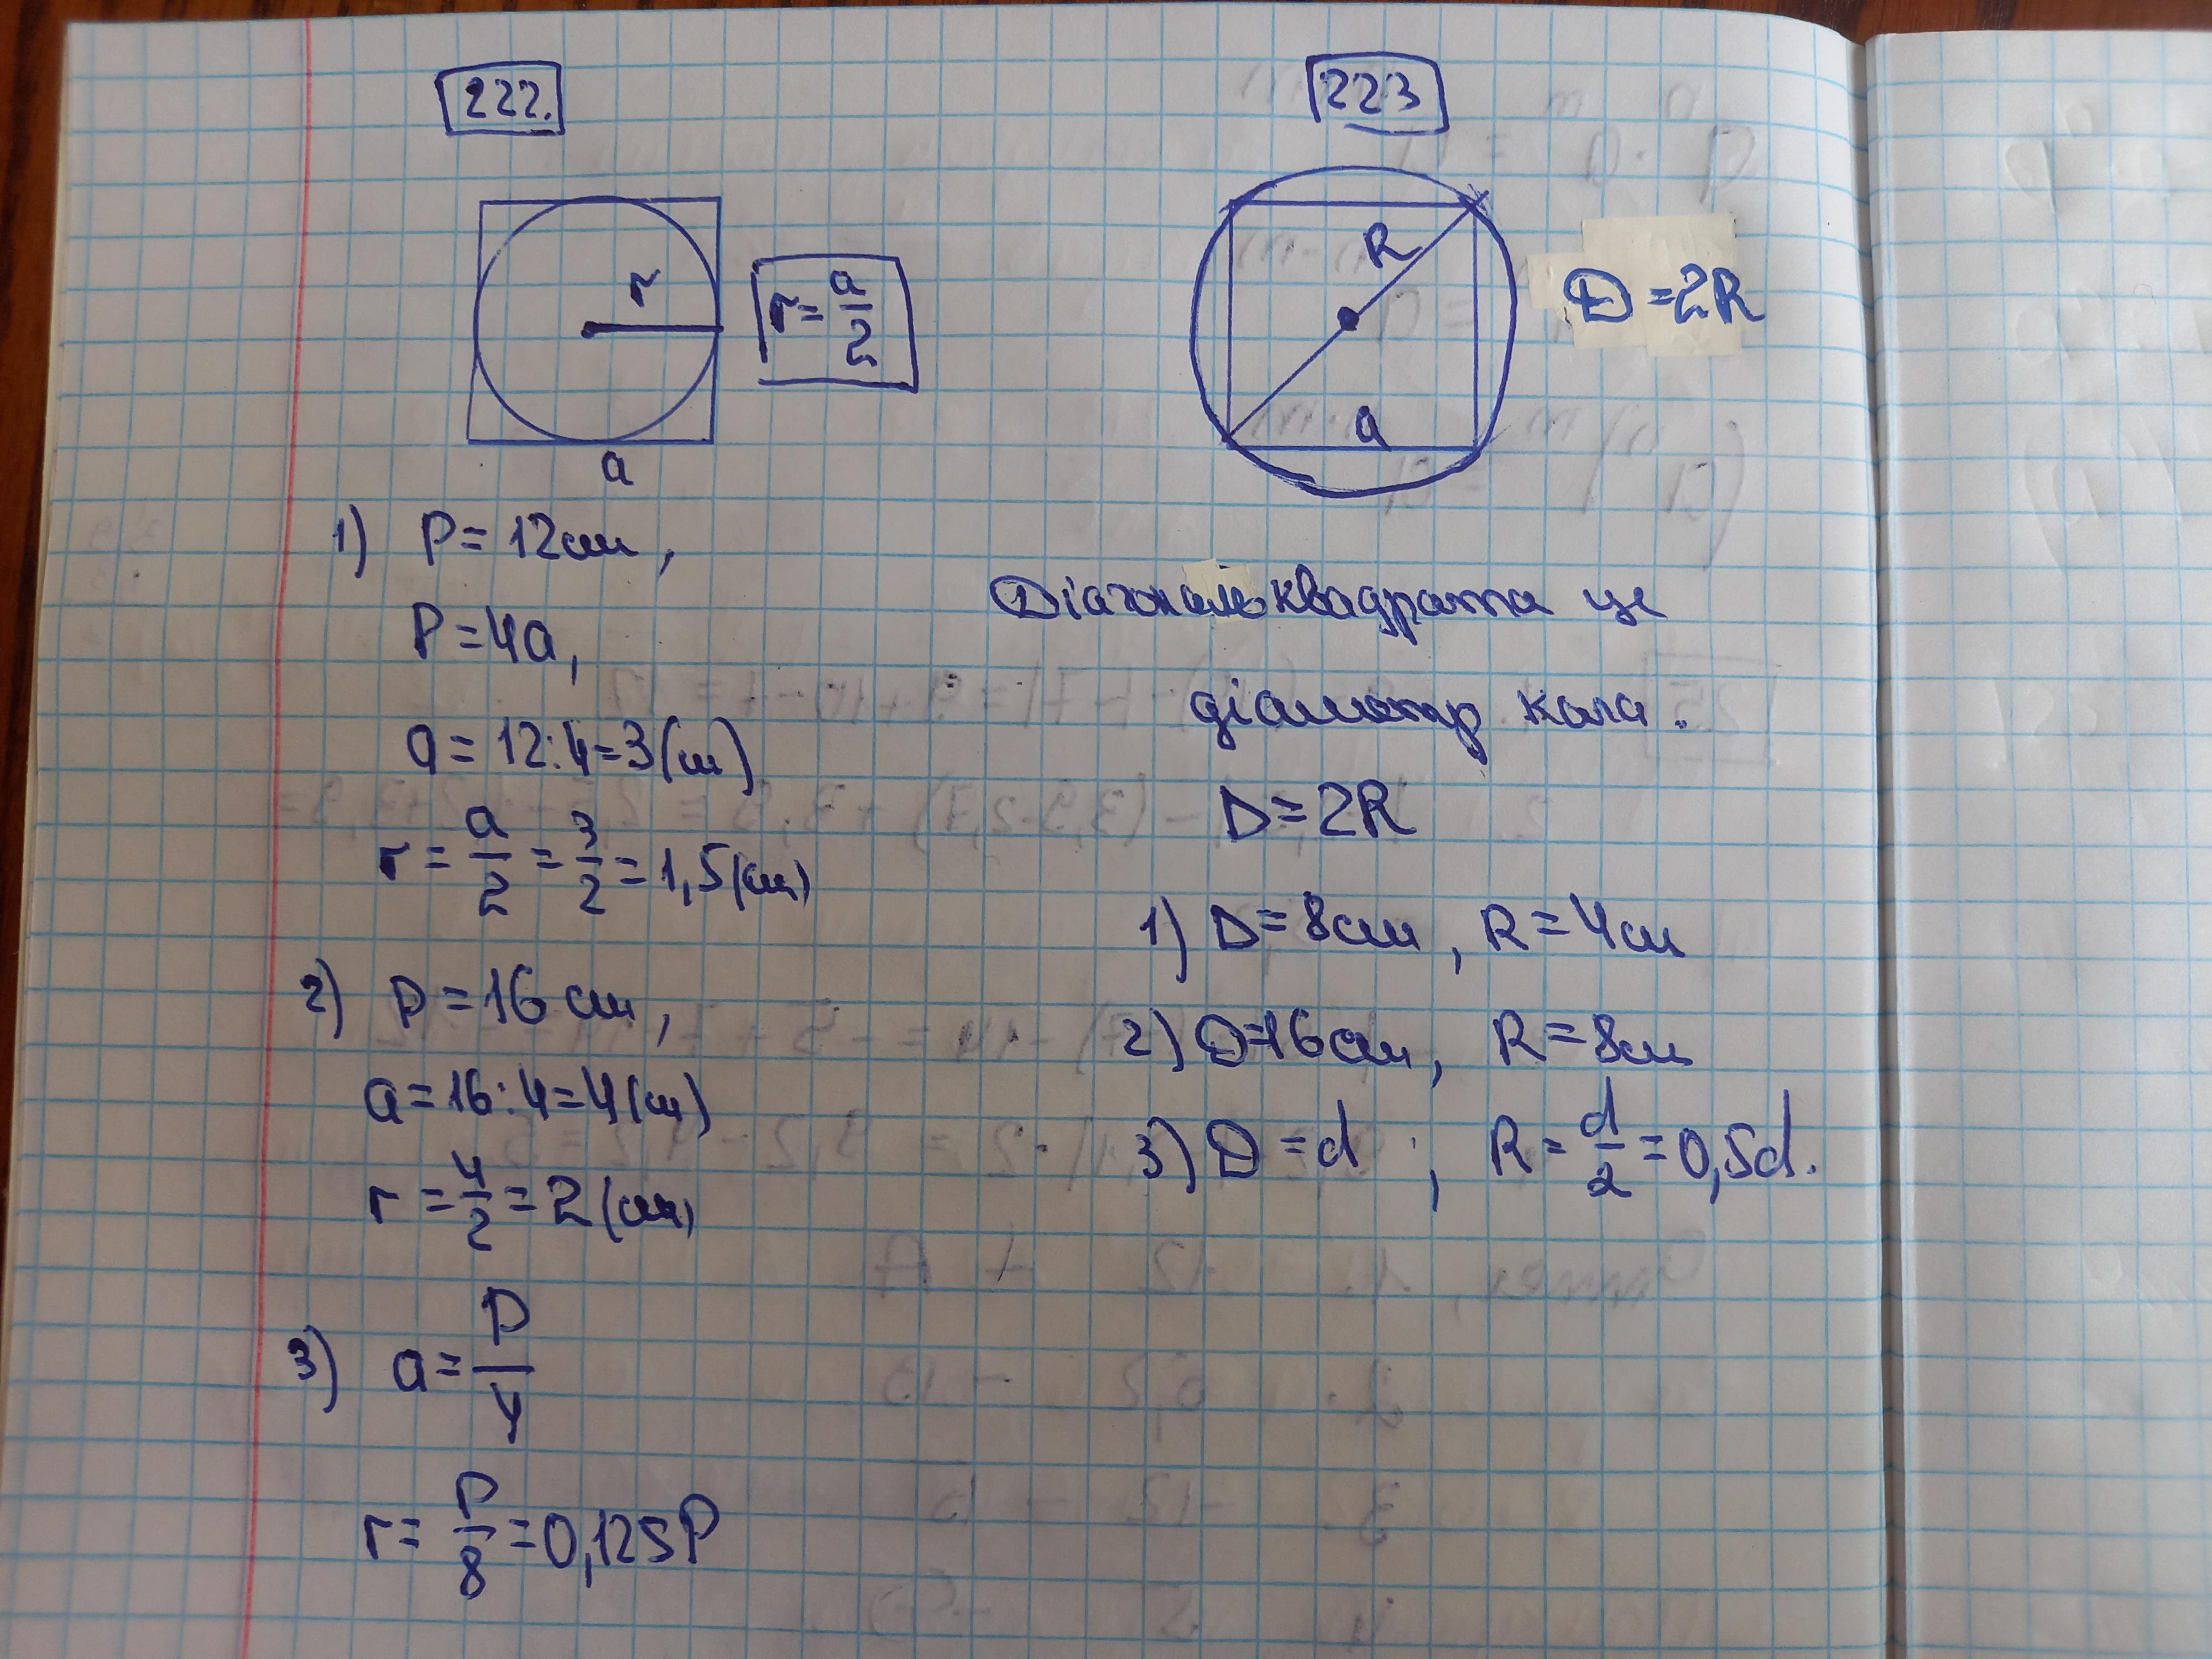 222.
r
r = a/2
a
1) P = 12 см,
P = 4a,
a = 12 : 4 = 3 (см)
r = a/2 = 3/2 = 1,5 (см)
2) P = 16 см,
a = 16 : 4 = 4 (см)
r = 4/2 = 2 (см)
3) a = P/4
r = P/8 = 0,125P
223
R
D = 2R
a
Діагональ квадрата це
діаметр кола.
D = 2R
1) D = 8 см, R = 4 см
2) D = 16 см, R = 8 см
3) D = d ; R = d/2 = 0,5d.